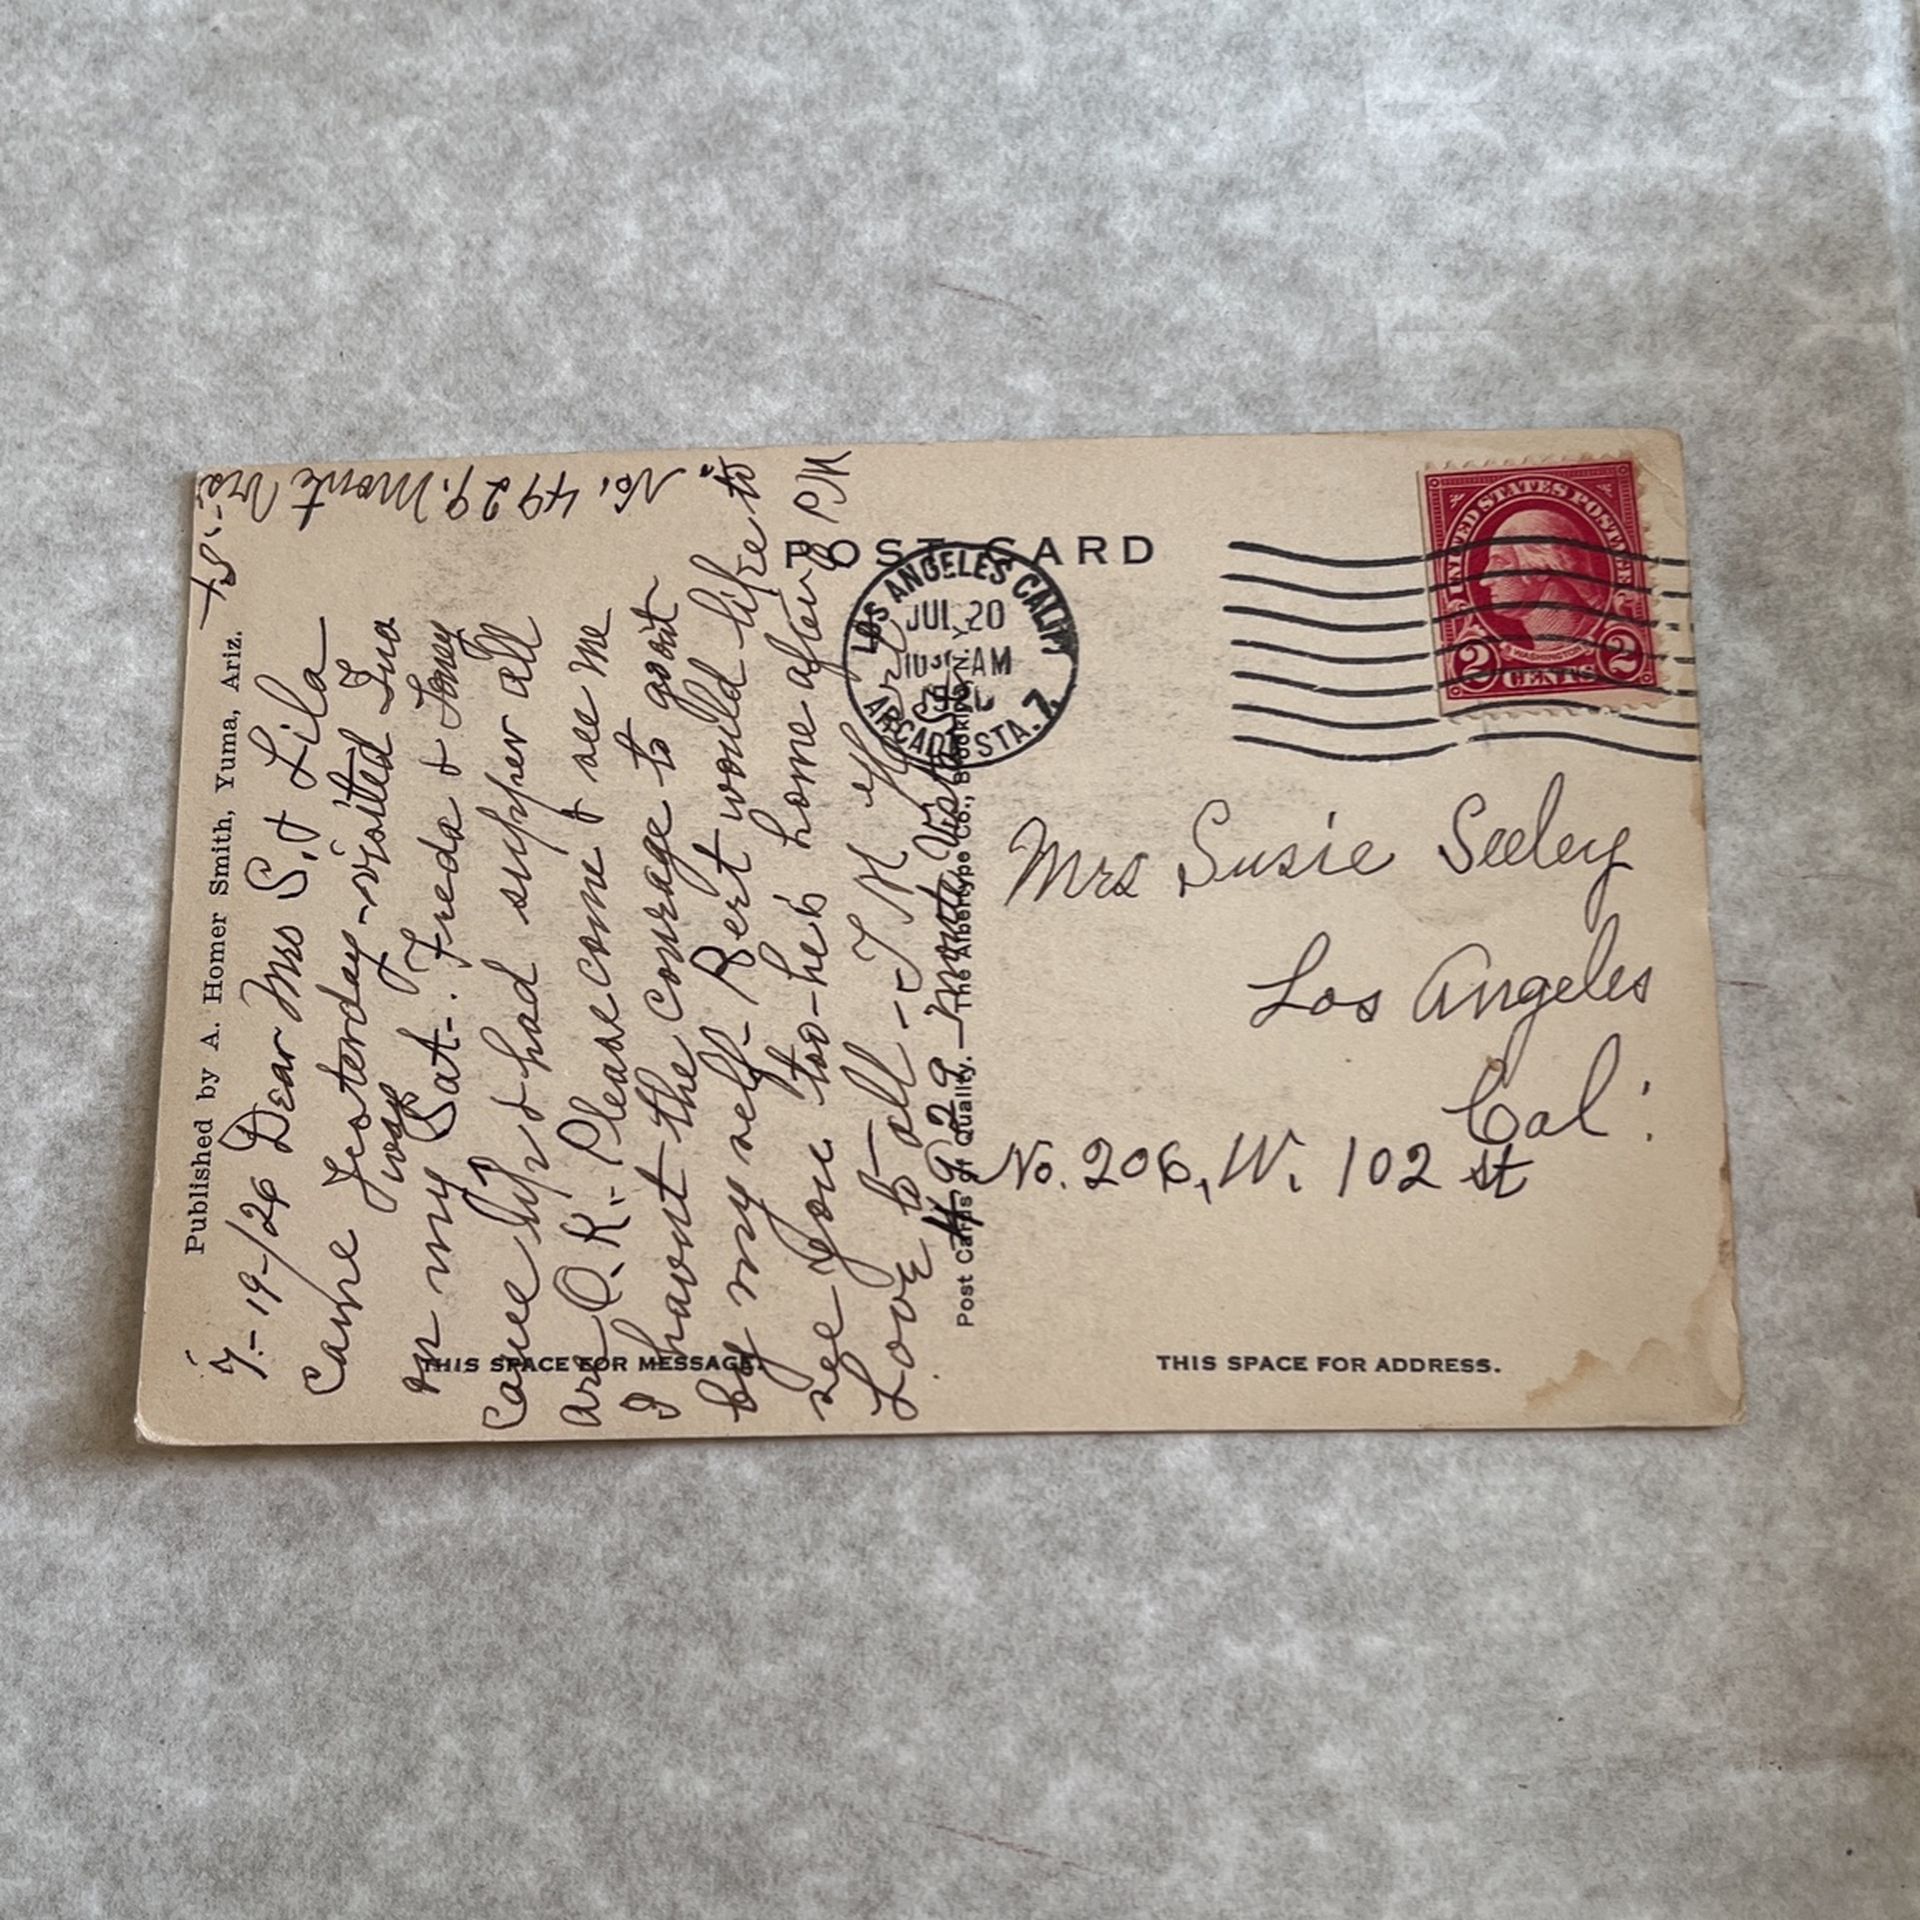 Published by A. Homer Smith, Yuma, Ariz.
7-19-/26 Dear Mrs S. & Lila
Came Yesterday - visited Ina
on my way
Sat-. Freda & Toney
came up & had supper all
are O.K.- Please come & see me
I havent the courage to go out
by my self- Bert would like to
see you too - he's home after PM
Love to all -
4929 Monta Vista St
No. 4929. Mont Vis
ta St.
POST CARD
LOS ANGELES CALIF.
JUL 20
10 AM
ARCADE STA. 7
UNITED STATES POSTAGE
WASHINGTON
2 CENTS 2
Post Cards of Quality. — The Albertype Co., Brooklyn, N.Y.
Mrs Susie Seeley
Los Angeles
Cal.
No. 206, W. 102 st
THIS SPACE FOR MESSAGE.
THIS SPACE FOR ADDRESS.